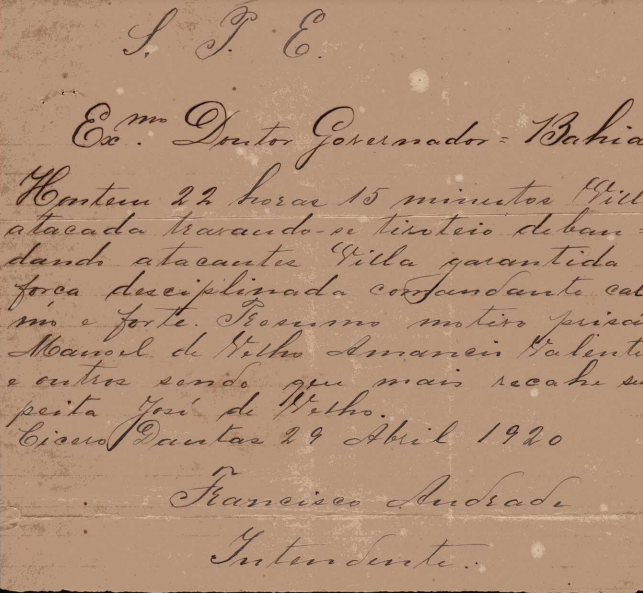 S. P. E.
Ex.mo Doutor Governador = Bahia
Hontem 22 horas 15 minutos Vill
atacada travando-se tiroteio deban=
dando atacantes Villa garantida
força desciplinada comandante cal
mo e forte. Presumo motivo prisã
Manoel de Velho Amancio Valente
e outros sendo que mais recahe sus
peita José de Velho.
Cicero Dantas 29 Abril 1920
Francisco Andrade
Intendente.